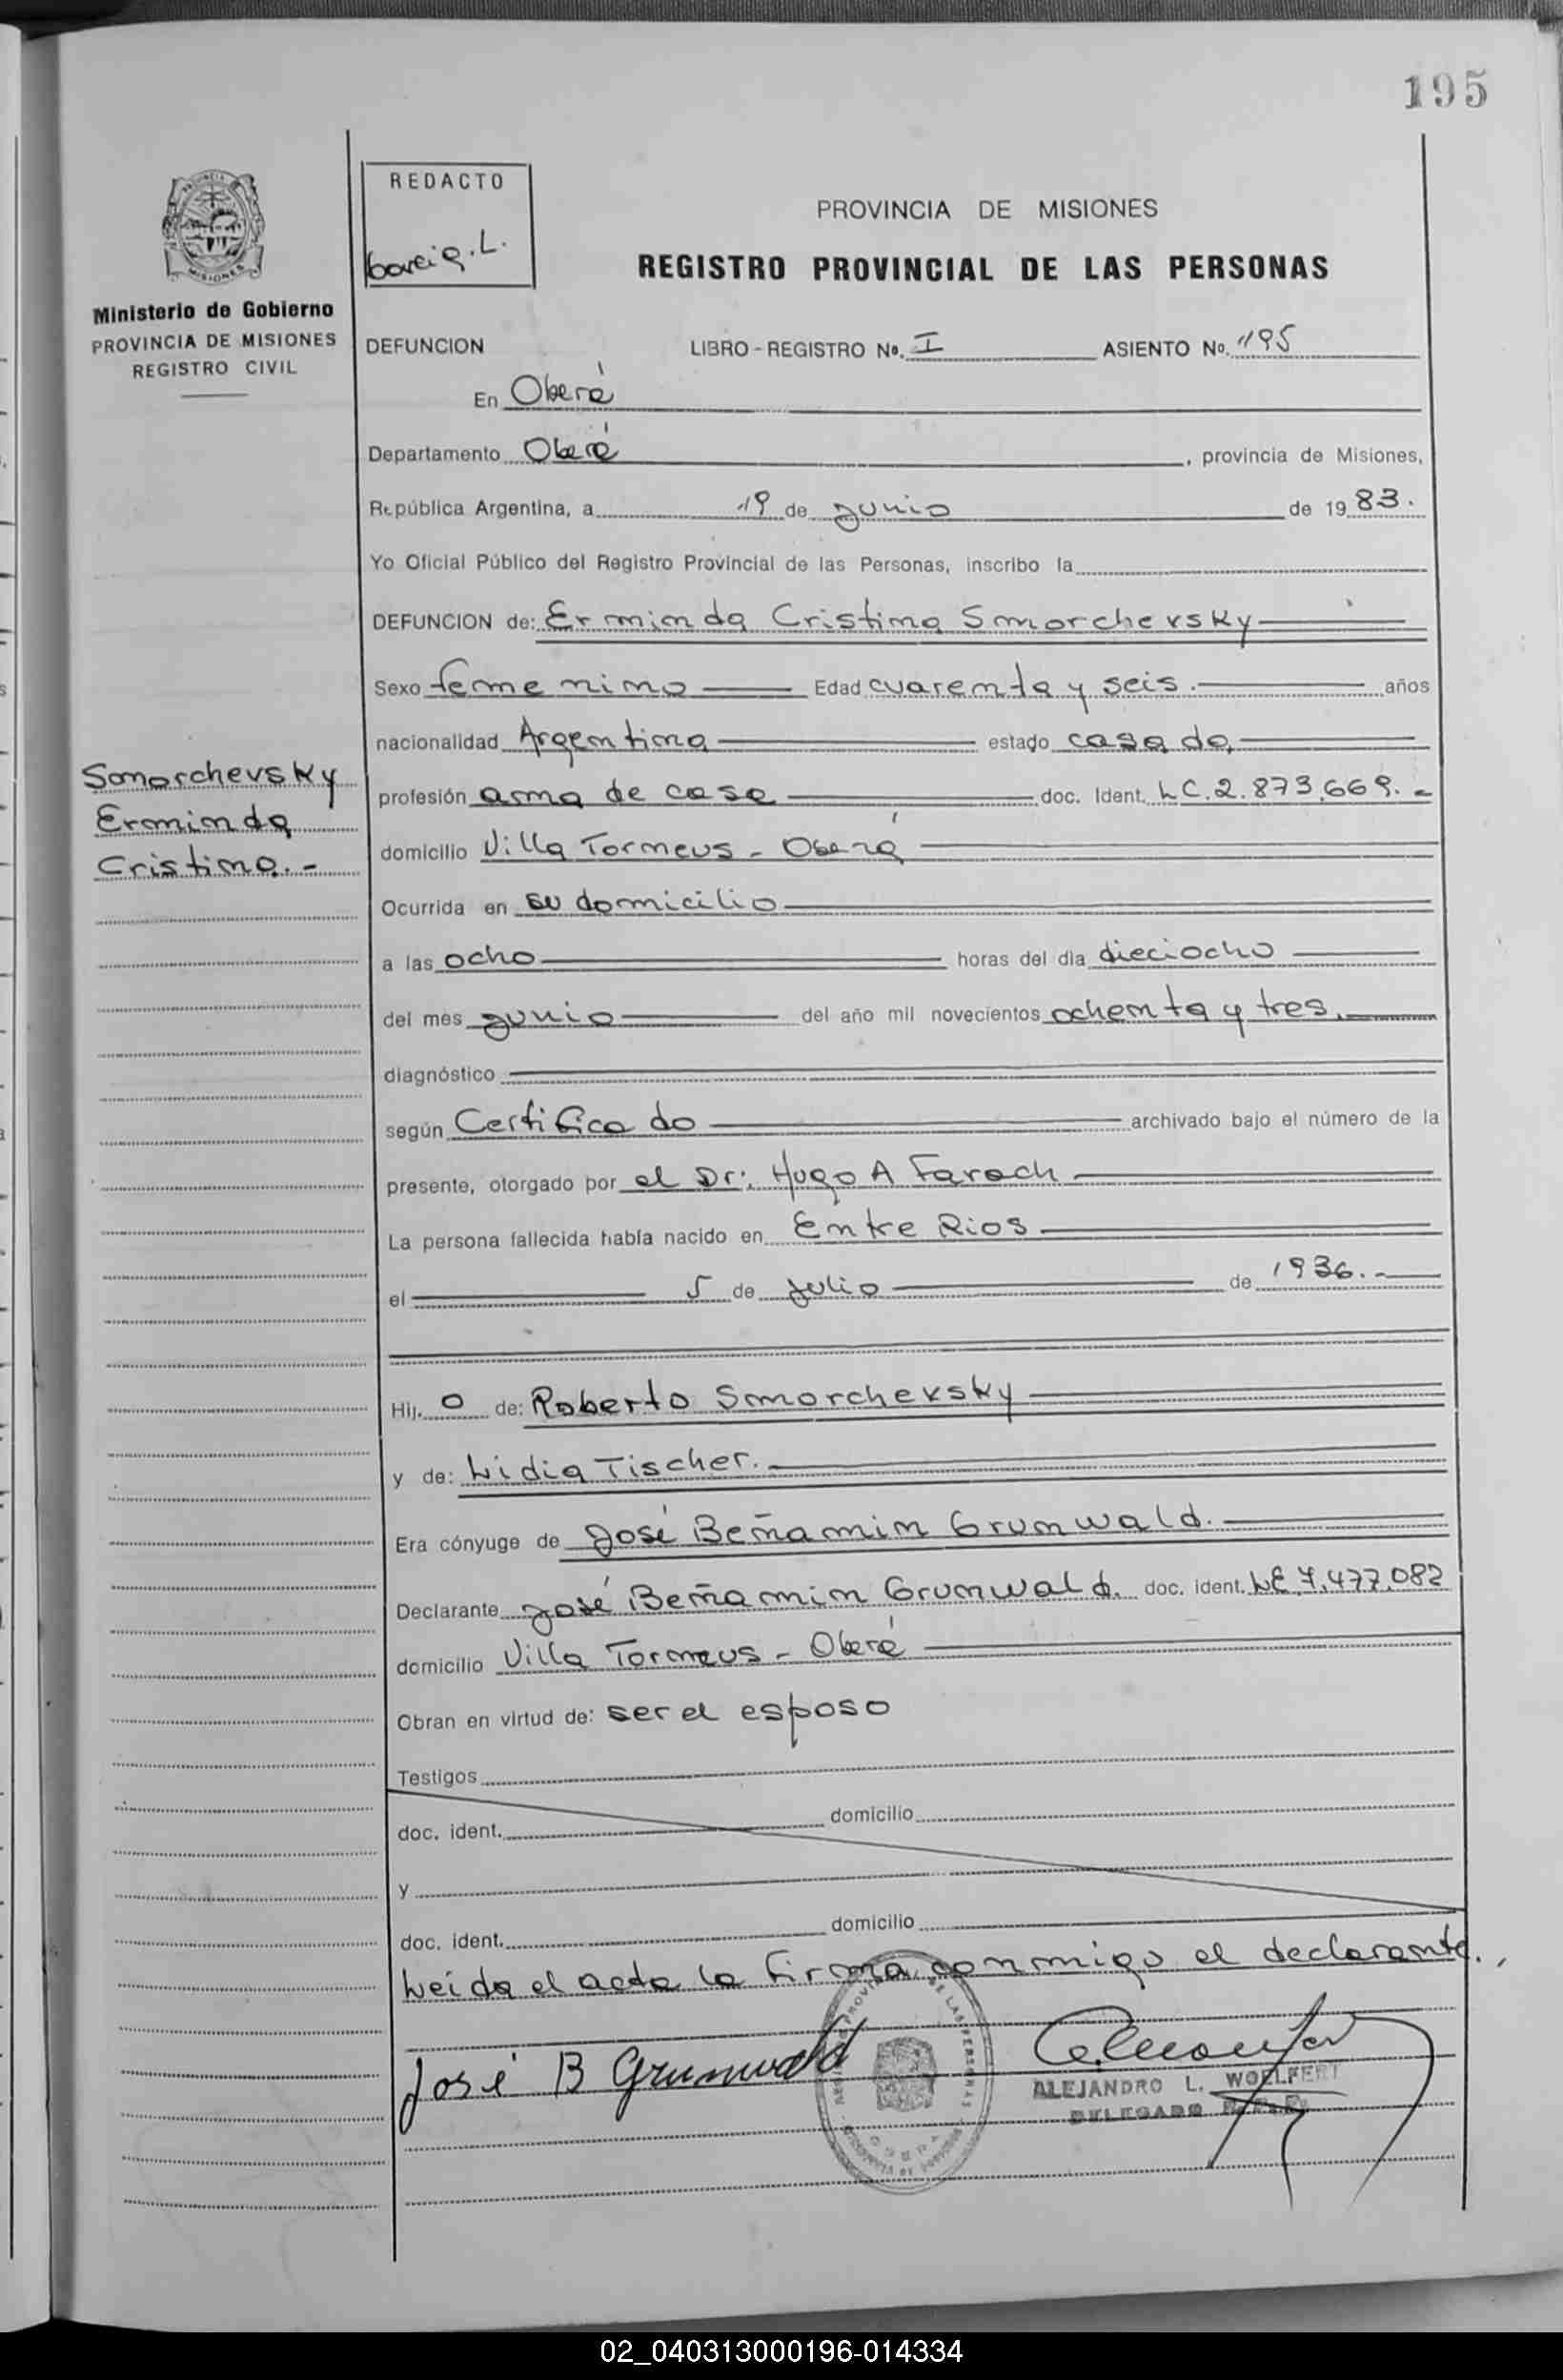 195
REDACTO
Garcia. L.
PROVINCIA DE MISIONES
REGISTRO PROVINCIAL DE LAS PERSONAS
MISIONES
Ministerio de Gobierno
PROVINCIA DE MISIONES
REGISTRO CIVIL
DEFUNCION LIBRO - REGISTRO No. I ASIENTO No. 195
En Oberá
Departamento Oberá, provincia de Misiones,
República Argentina, a 19 de junio de 1983.
Yo Oficial Público del Registro Provincial de las Personas, inscribo la
DEFUNCION de: Erminda Cristina Smorchevsky
Sexo femenino Edad cuarenta y seis. años
nacionalidad Argentina estado casada
Somorchevsky
Erminda
Cristina.-
profesión ama de casa doc. Ident. LC.2.873.669.-
domicilio Villa Torneus - Oberá
Ocurrida en su domicilio
a las ocho horas del dia dieciocho
del mes junio del año mil novecientos ochenta y tres.
diagnóstico
según Certificado archivado bajo el número de la
presente, otorgado por el Dr: Hugo A Farach
La persona fallecida había nacido en Entre Rios
el 5 de julio de 1936.-
Hij. a de: Roberto Smorchevsky
y de: Lidia Tischer.
Era cónyuge de José Beñamin Grunwald.
Declarante José Beñamin Grunwald. doc. ident. LE 7.477.082
domicilio Villa Torneus - Oberá
Obran en virtud de: ser el esposo
Testigos
doc. ident. domicilio
y
doc. ident. domicilio
Leida el acta la firma conmigo el declarante.
José B Grunwald
ALEJANDRO L. WOELFERT
DELEGADO
02_040313000196-014334